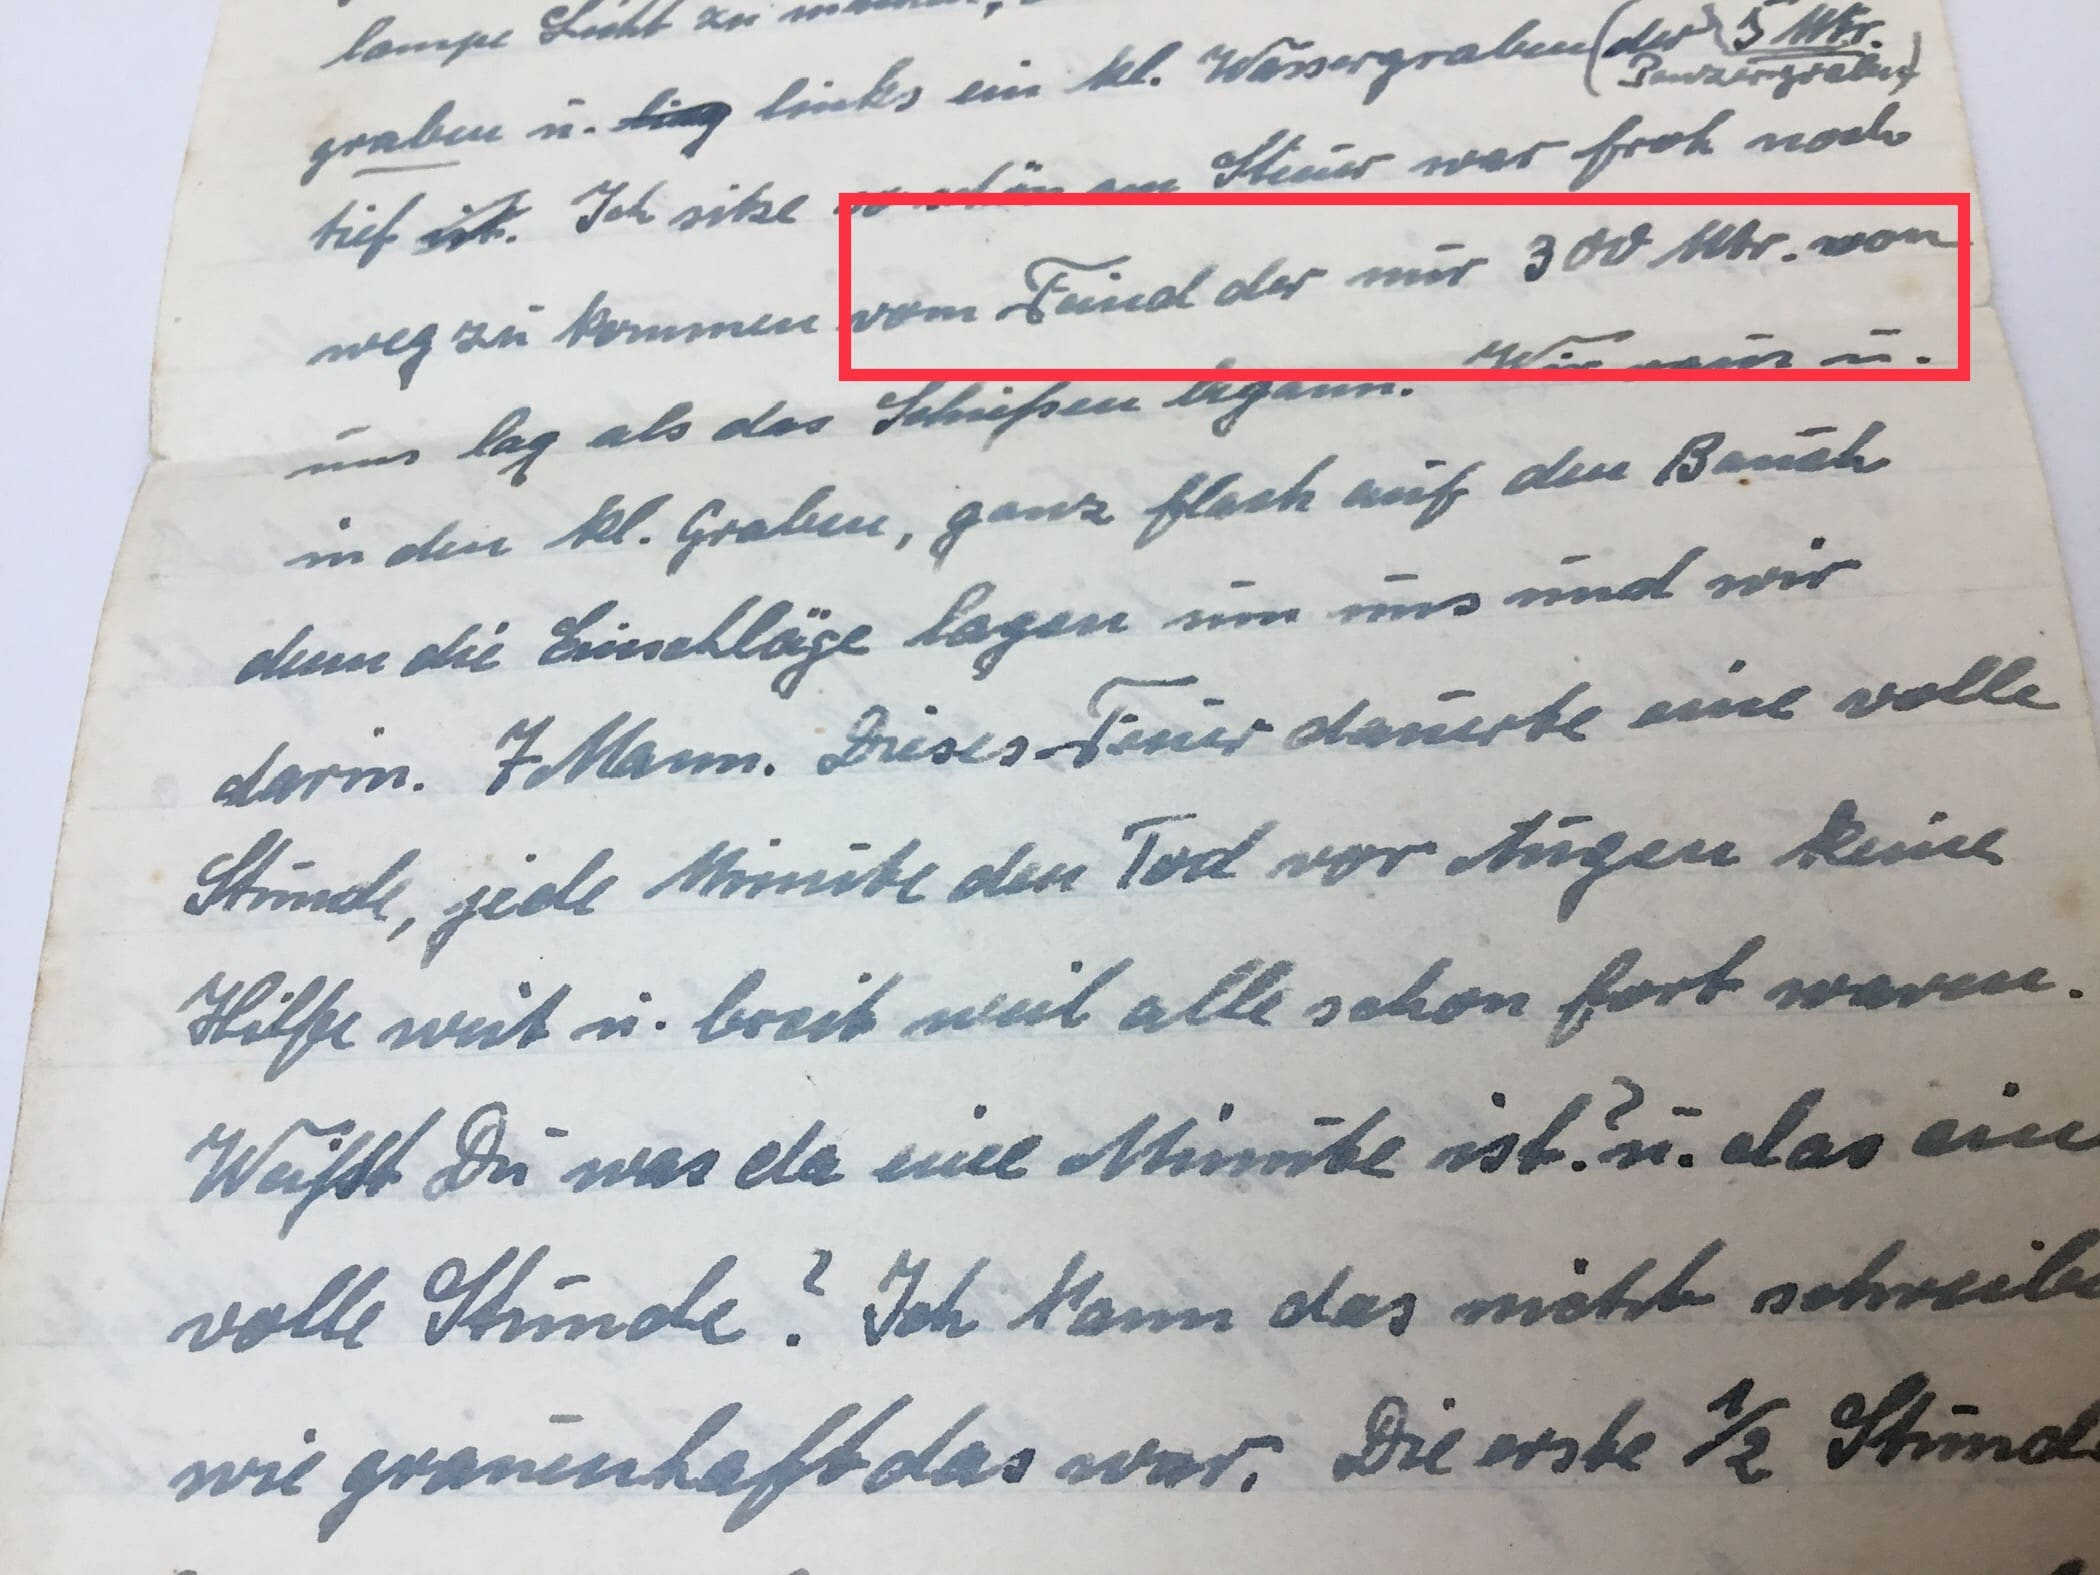 lampe Licht zu machen,
graben u. links ein kl. Wassergraben (der 5 Mtr.
Panzergraben)
tief ist. Ich sitze so schön am Steuer war froh noch
weg zu kommen vom Feind der nur 300 Mtr. von
uns lag als das Schießen begann. Wir raus u.
in den kl. Graben, ganz flach auf den Bauch
denn die Einschläge lagen um uns und wir
darin. 7 Mann. Dieses Feuer dauerte eine volle
Stunde, jede Minute den Tod vor Augen keine
Hilfe weit u. breit weil alle schon fort waren.
Weißt Du was da eine Minute ist? u. das ein
volle Stunde? Ich kann das nicht schreibe
wie grauenhaft das war. Die erste 1/2 Stunde